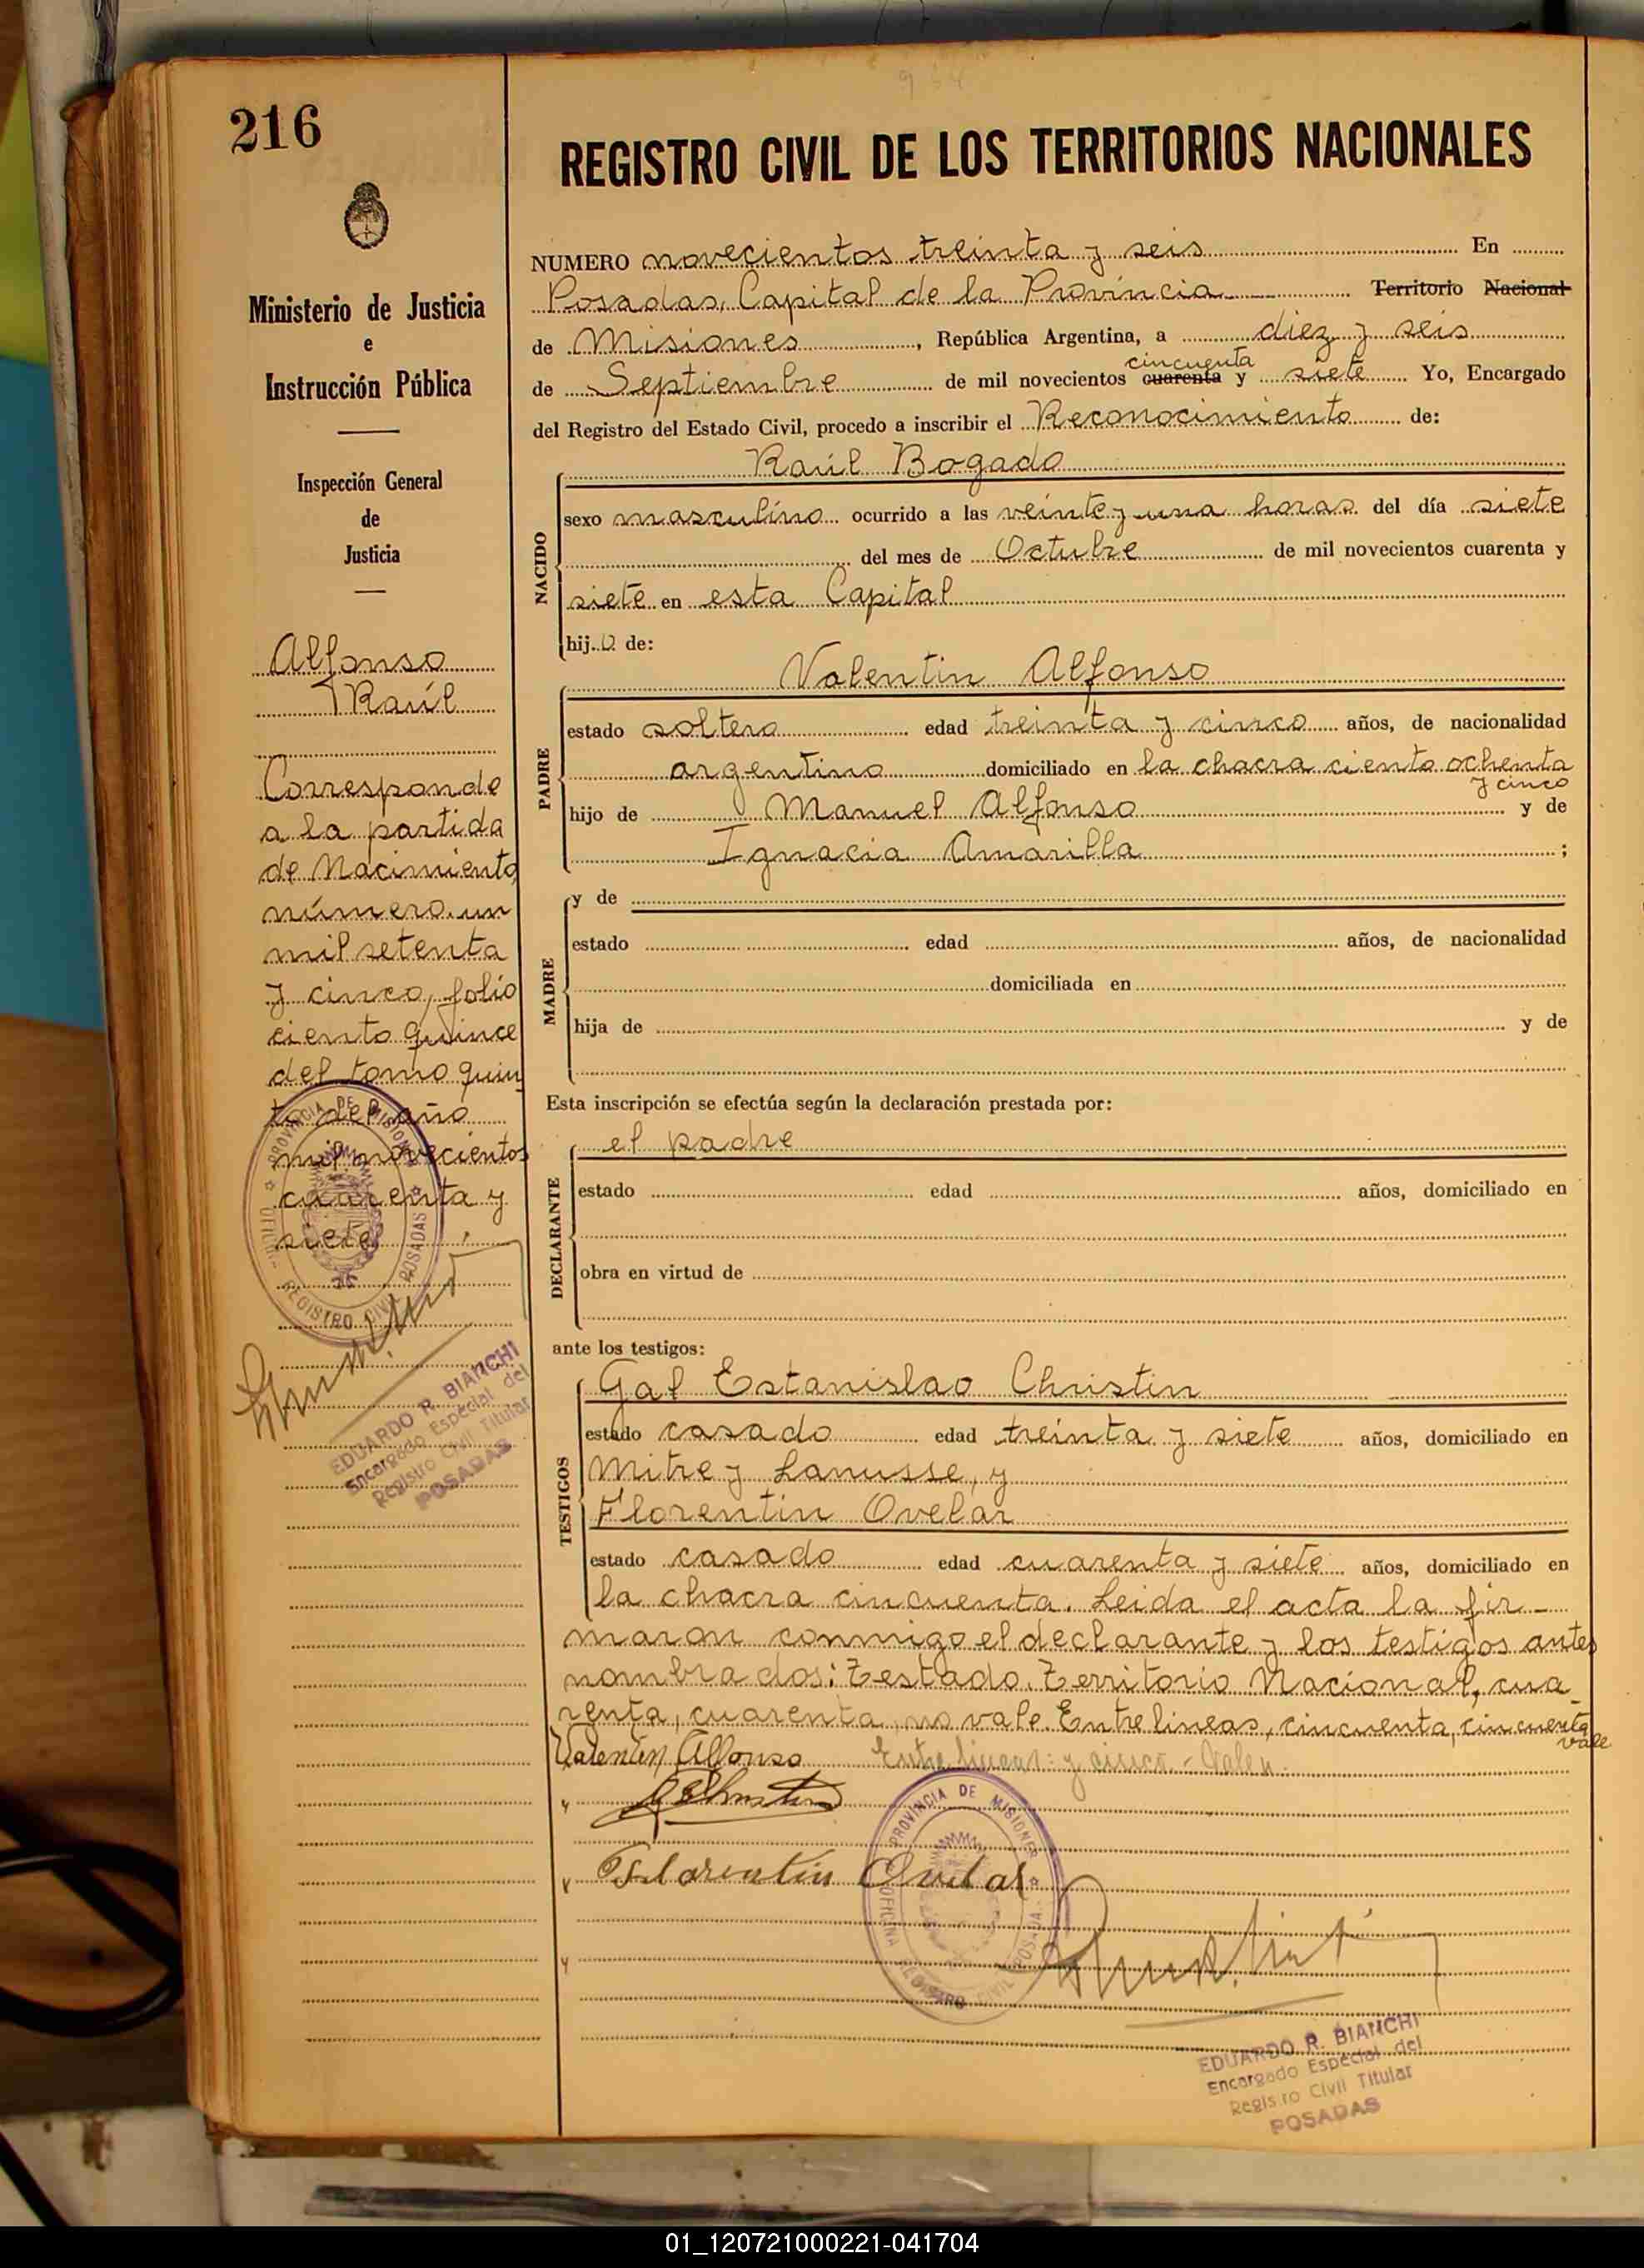 216
REGISTRO CIVIL DE LOS TERRITORIOS NACIONALES
Ministerio de Justicia
e
Instrucción Pública
Inspección General
de
Justicia
Alfonso
Raúl
Corresponde
a la partida
de Nacimiento
número un
mil setenta
y cinco, folio
ciento quince
del tomo quin
to del año
mil novecientos
cuarenta y
siete
PROVINCIA DE MISIONES
REGISTRO CIVIL POSADAS
EDUARDO R. BIANCHI
Encargado Especial del
Registro Civil Titular
POSADAS
NUMERO novecientos treinta y seis En
Posadas, Capital de la Provincia Territorio Nacional
de Misiones, República Argentina, a diez y seis
cincuenta
de Septiembre de mil novecientos cuarenta y siete Yo, Encargado
del Registro del Estado Civil, procedo a inscribir el Reconocimiento de:
NACIDO
Raúl Bogado
sexo masculino ocurrido a las veinte y una horas del día siete
del mes de Octubre de mil novecientos cuarenta y
siete en esta Capital
hijo de:
PADRE
Valentin Alfonso
estado soltero edad treinta y cinco años, de nacionalidad
argentino domiciliado en la chacra ciento ochenta
y cinco
hijo de Manuel Alfonso y de
Ignacia Amarilla;
MADRE
y de
estado edad años, de nacionalidad
domiciliada en
hija de y de
Esta inscripción se efectúa según la declaración prestada por:
DECLARANTE
el padre
estado edad años, domiciliado en
obra en virtud de
ante los testigos:
TESTIGOS
Gal Estanislao Christin
estado casado edad treinta y siete años, domiciliado en
Mitre y Lanusse, y
Florentin Ovelar
estado casado edad cuarenta y siete años, domiciliado en
la chacra cincuenta. Leida el acta la fir-
maron conmigo el declarante y los testigos antes
nombrados: Testado. Territorio Nacional, cua
renta, cuarenta, no vale. Entre lineas, cincuenta, cincuenta
vale
Valentin Alfonso Entre lineas: y cinco.- Valen.
Florentin Ovelar
PROVINCIA DE MISIONES
OFICINA REGISTRO CIVIL POSADAS
EDUARDO R. BIANCHI
Encargado Especial del
Registro Civil Titular
POSADAS
01_120721000221-041704